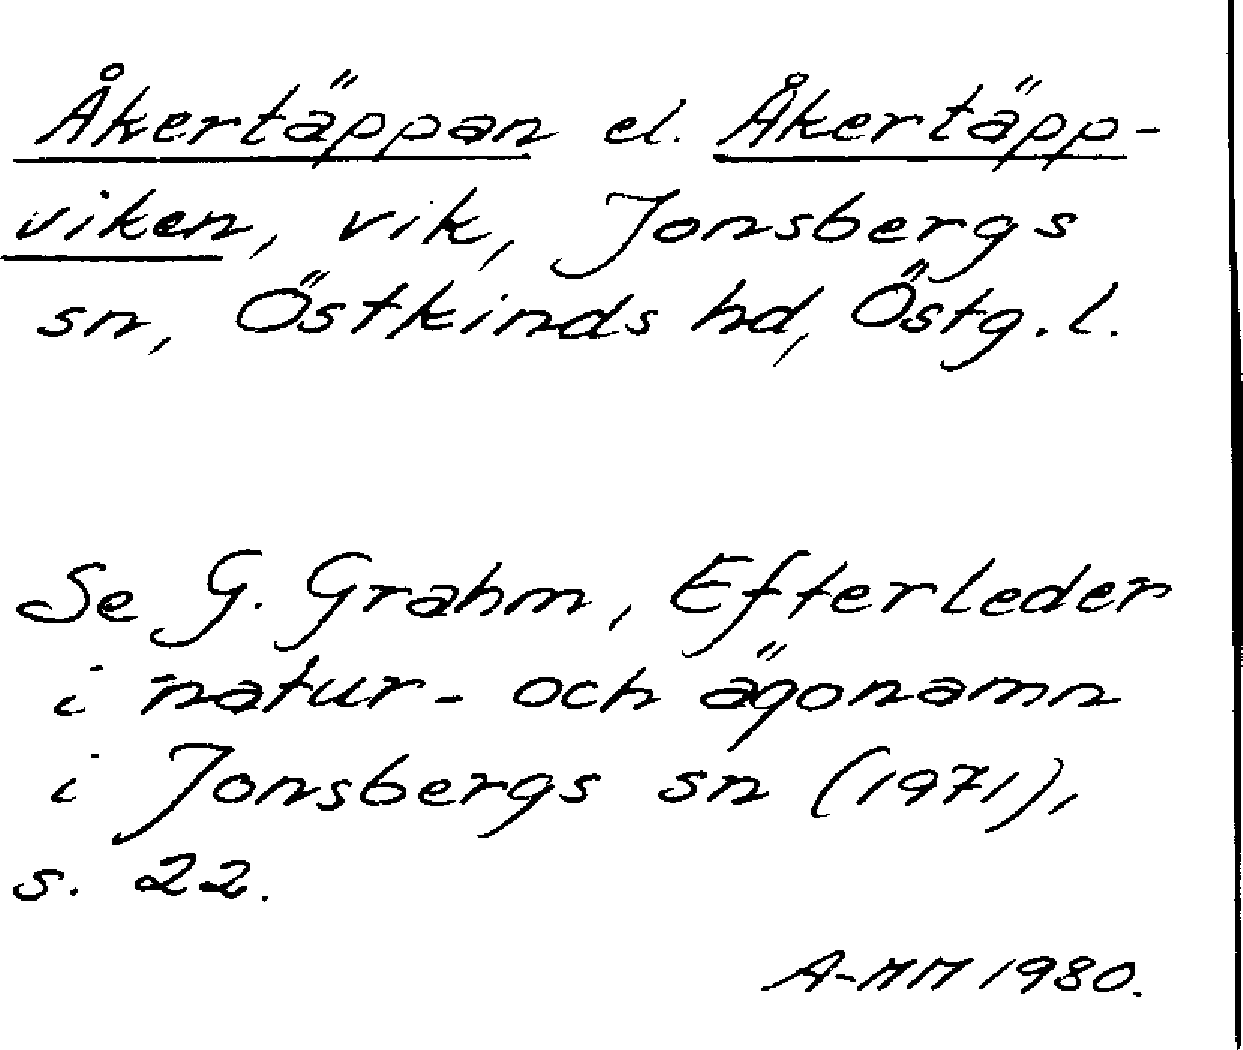 Åkertäppan el. Åkertäpp-
viken, vik, Jonsbergs
sn, Östkinds hd, Östg. l.
Se G. Grahm, Efterleder
i natur- och ägonamn
i Jonsbergs sn (1971),
s. 22.
A-MM 1980.